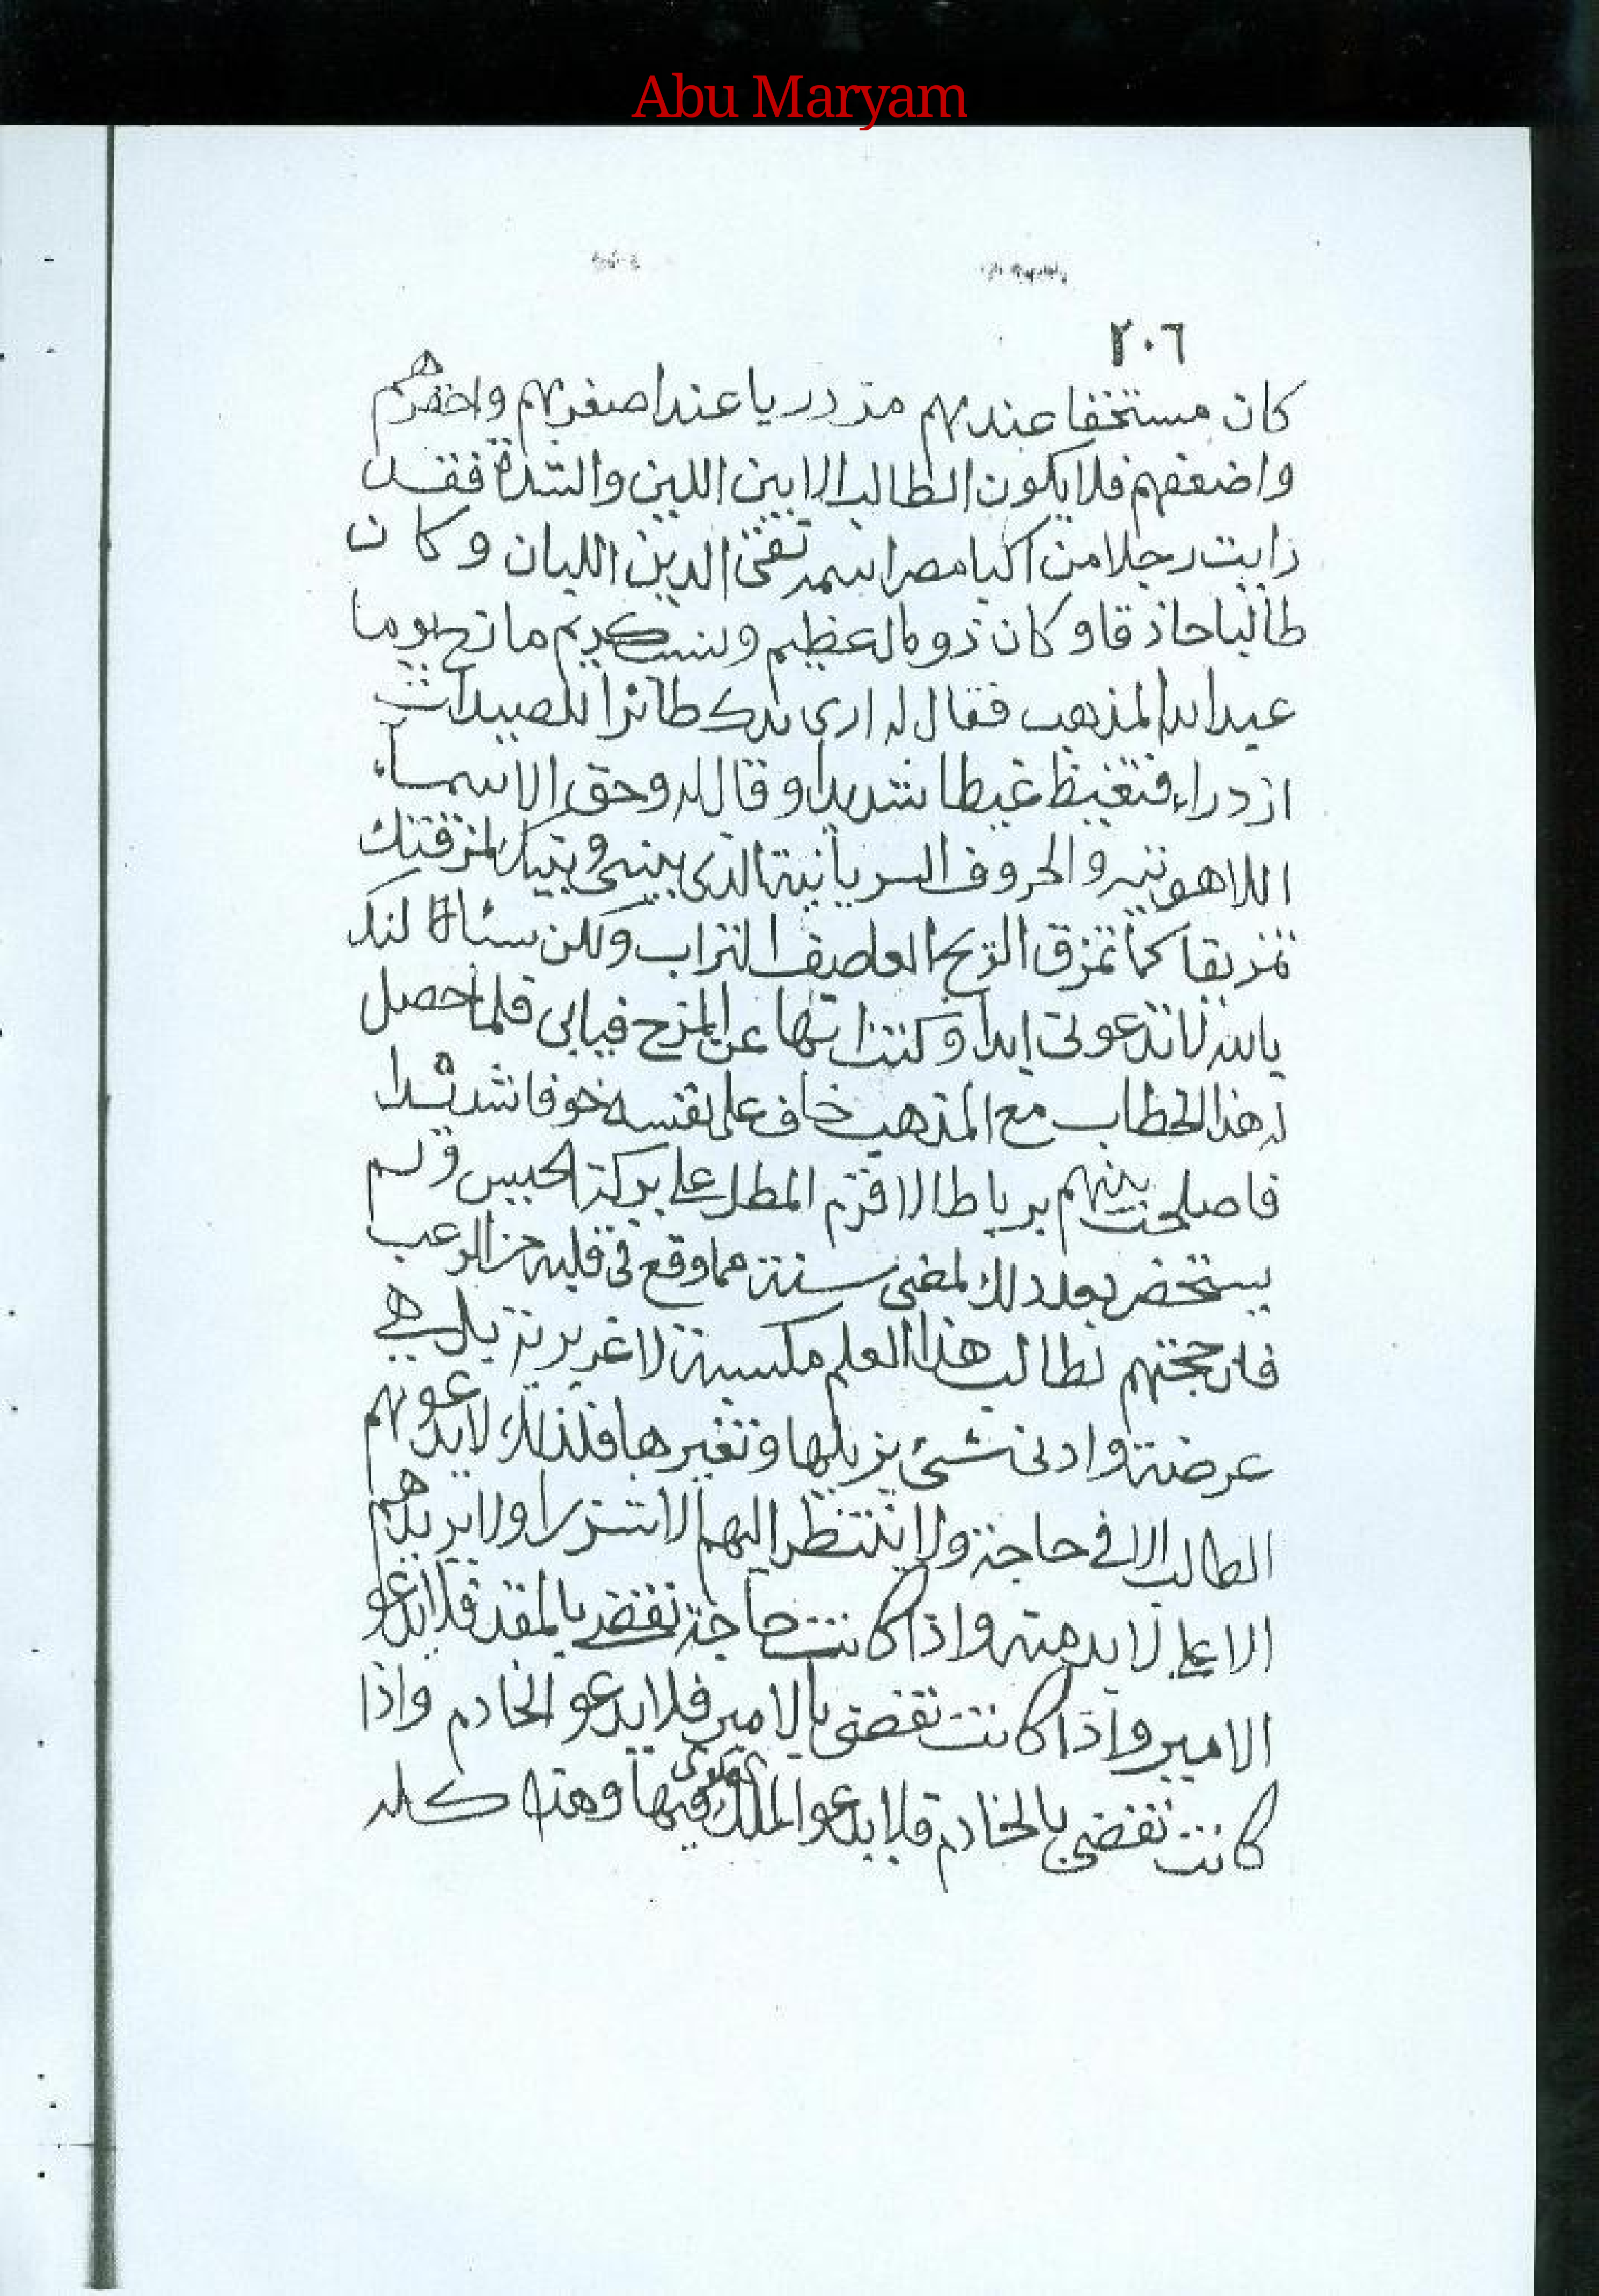 Abu Maryam
٢٠٦
كان مستخفا عندهم مزدريا عند اصغرهم واحقرهم
واضعفهم فلا يكون الطالب الا بين اللين والشدة فقد
رايت رجلا من اكبا مصر اسمه تقى الدين اللبان وكان
طالبا حاذقا وكان ذو مال عظيم ونسب كريم مازح يوما
عبدالله المذهب فقال له ارى بدك طائرا للصيد
ازدراء فتغيظ غيظا شديدا وقال له وحق الاسماء
اللاهوتيه والحروف السريانية الذى بينى وبينك لمزقتك
تمزيقا كما تمزق الريح العاصف التراب ولكن
بالله لا تدعونى ابدا وكنت انهاه عن المزح فيابى فلما حصل
له هذا الخطاب مع المذهب خاف على نفسه خوفا شديدا
فاصلحت بينهم برباط الافرم المطل على بركة الحبيش ولم
يستحضر بعد ذلك لمضى سنة مما وقع فى قلبه من الرعب
فان حجتهم لطالب هذا العلم مكسبة لا غريزية بل هي
عرضة وادنى شئ يزيلها وتغيرها فلذلك لا يدعونهم
الطالب الا في حاجة ولا ينتظر اليهم الا شزرا ولا يريدهم
الا على لا بد منه واذا كانت حاجة تقضى با فلا يدعو
الامير واذا كانت تقضى بالامير فلا يدعو الخادم واذا
كانت تقضى بالخادم فلا يدعوا الملك فيها وهذا كله